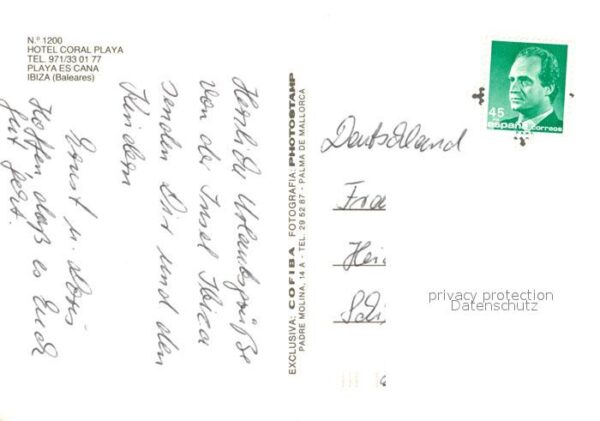 N.º 1200
HOTEL CORAL PLAYA
TEL. 971/33 01 77
PLAYA ES CANA
IBIZA (Baleares)
Herzliche Urlaubsgrüße
von der Insel Ibiza
senden Dir und den
Kindern
Ernst u. Doris
Hoffen daß es Euch
gut geht.
EXCLUSIVA: COFIBA FOTOGRAFIA: PHOTOSTAMP
PADRE MOLINA, 14 A - TEL. 29 52 87 - PALMA DE MALLORCA
45
españa correos
Deutschland
Fra
Hei
Schi
privacy protection
Datenschutz